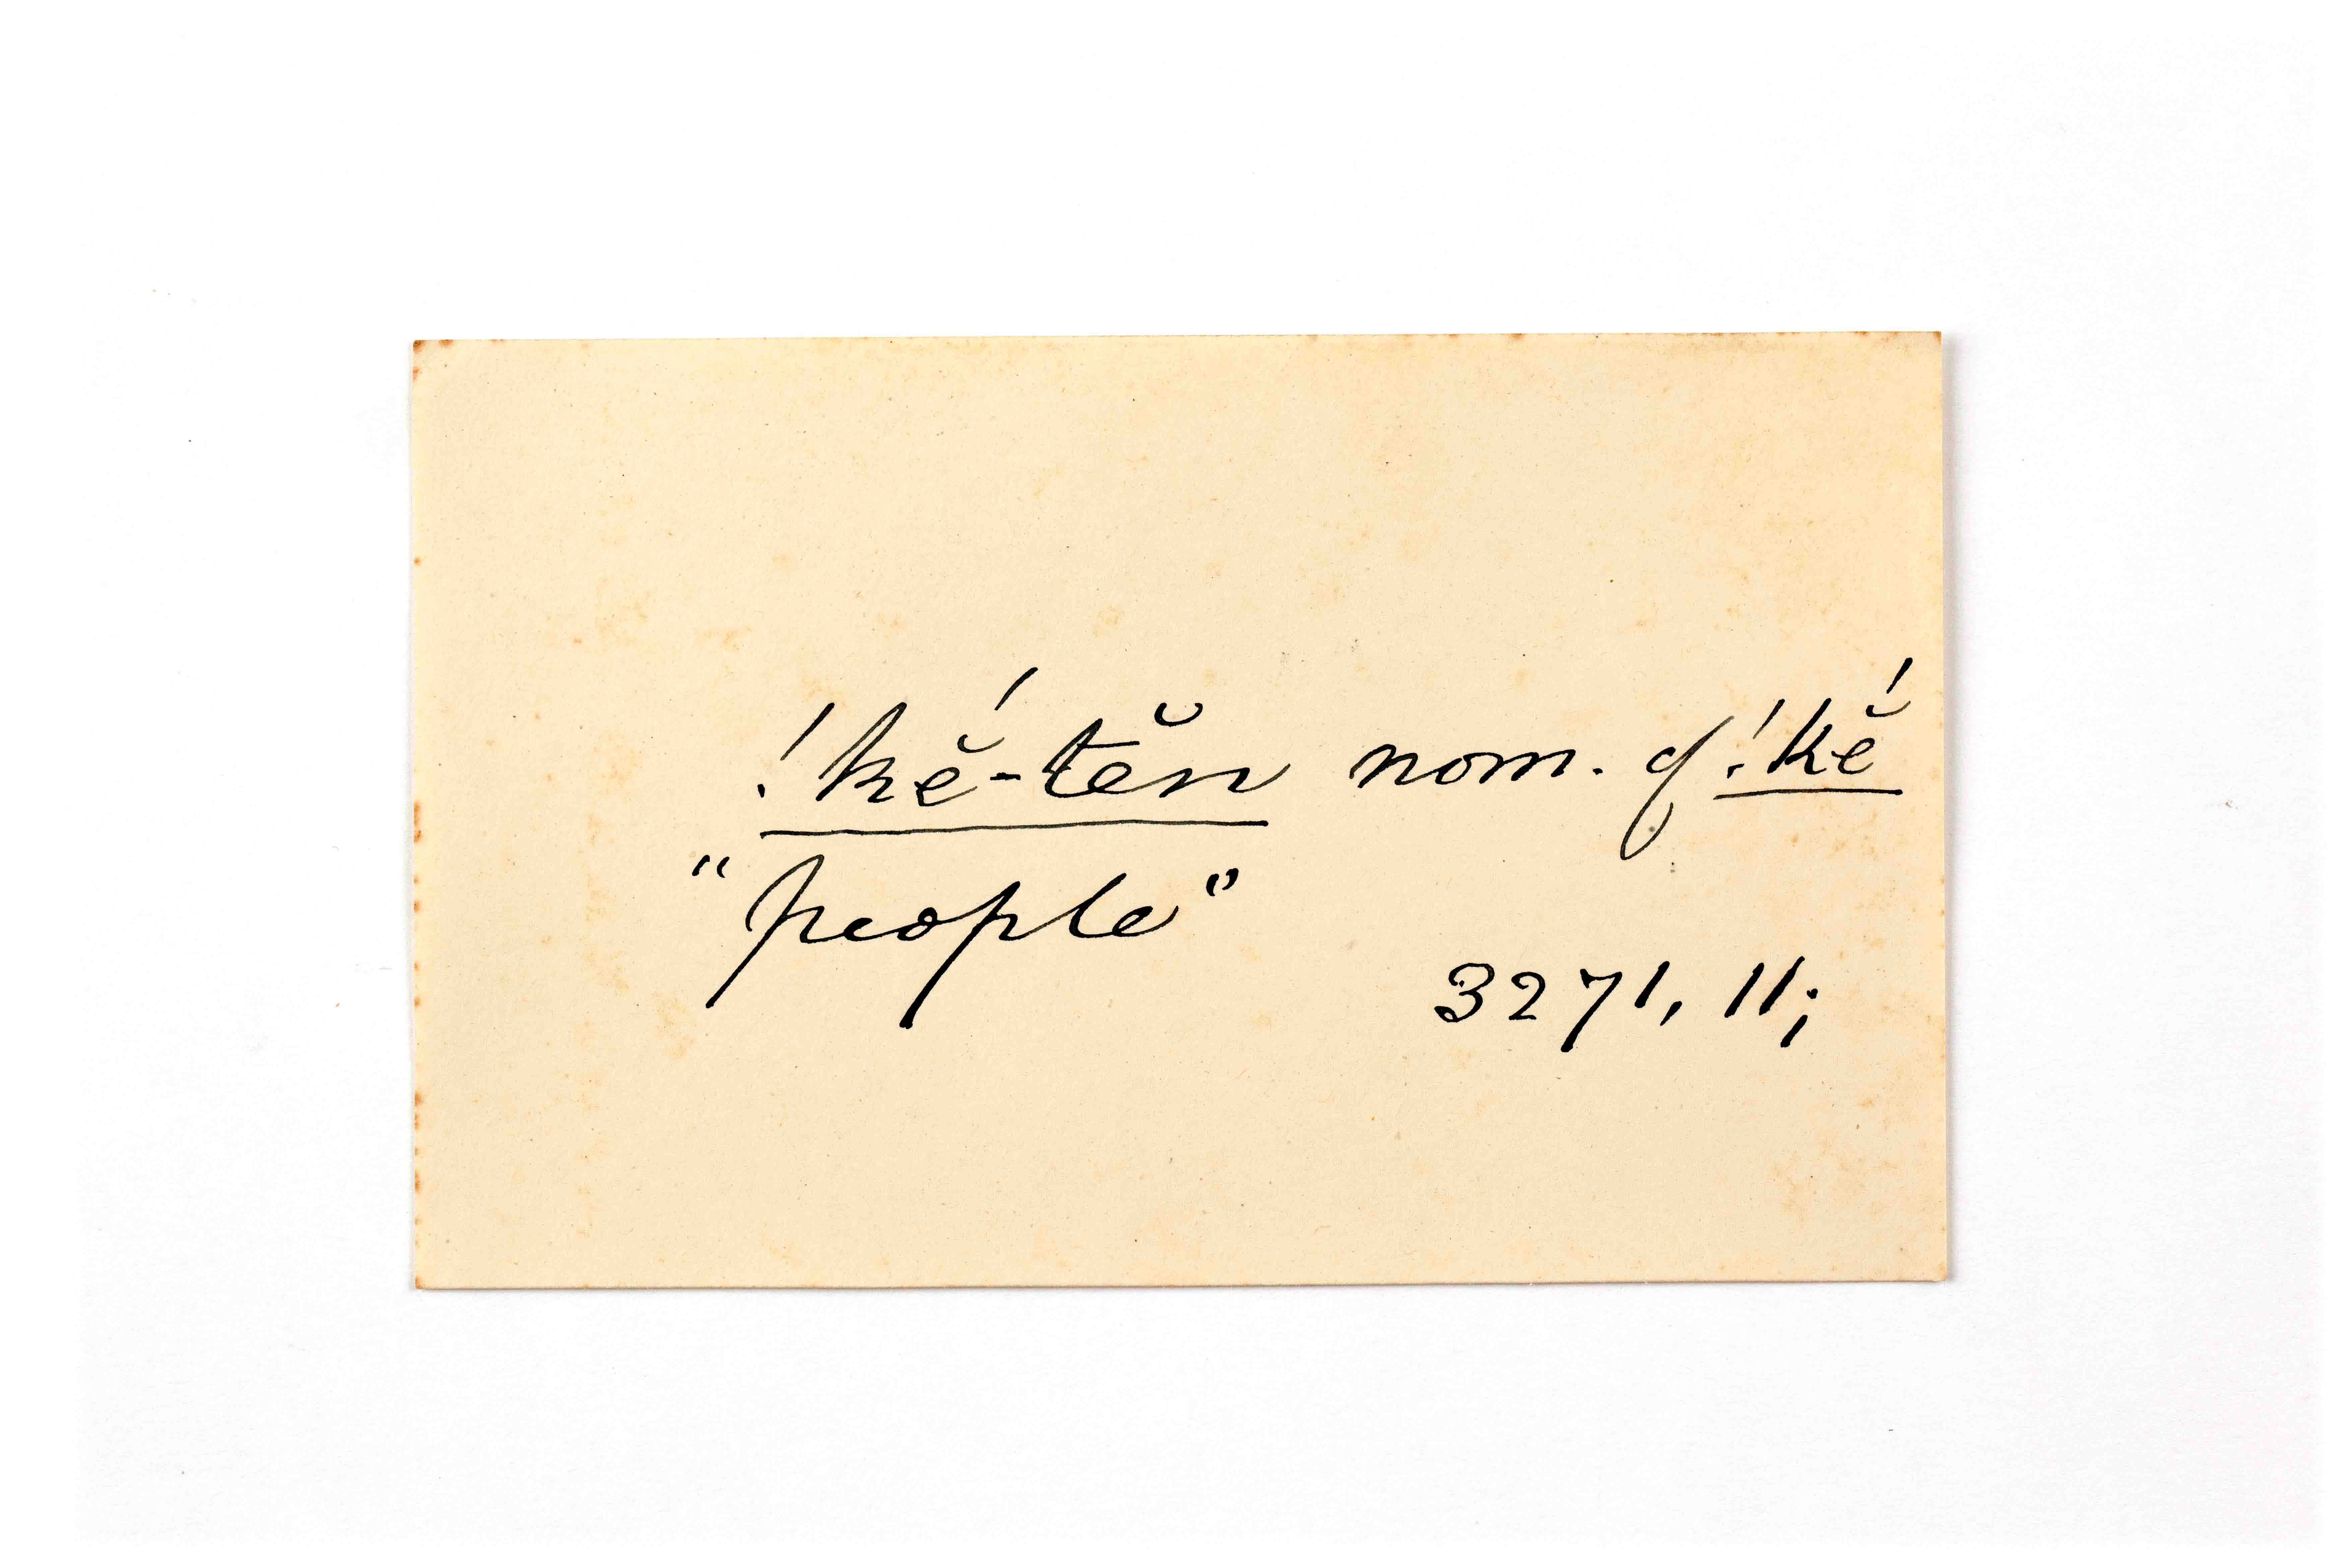 !kĕ́-tĕn nom. of !kĕ́
"people"
3271, 11;